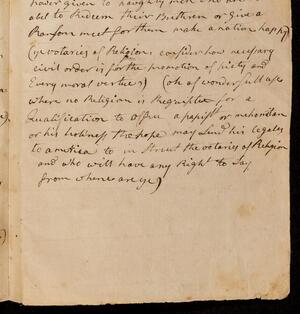 hower given to naughty men who are
abel to Redeem their Bretheren or Give a
Ransom meet for them make a nation happy
(ye votaries of Religion, consider how necessary
civil order is for the promotion of piety and
Every moral vertue) (oh af wonderfull
where no Religion is Requisite for a
Qualification to office a papist or mehomitan
or his holiness the pope may Send his legates
to america to in Struct the votaries of Religion
and who will have any Right to Say
from whence are ye)